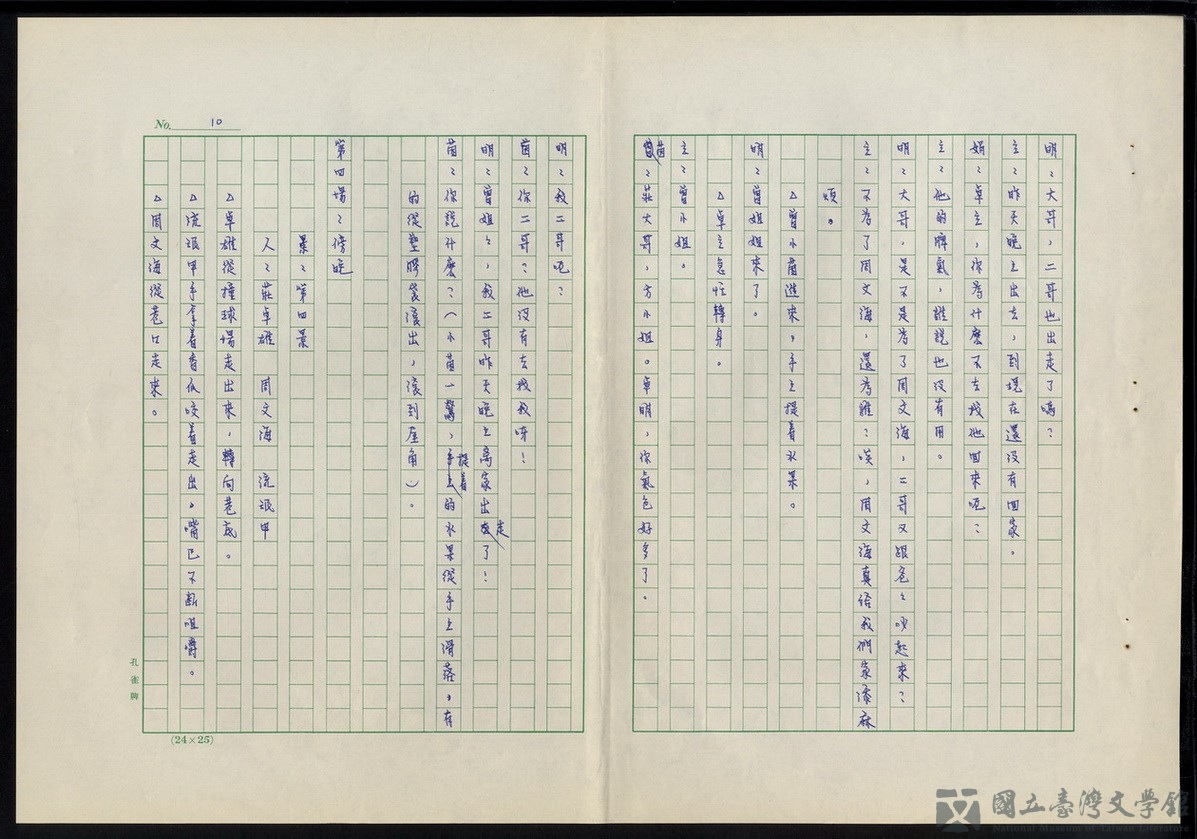 No. 10
明：大哥，二哥也出走了嗎？
主：昨天晚上出去，到現在還沒有回家。
娟：卓主，你為什麼不去找他回來呢？
主：他的脾氣，誰說也沒有用。
明：大哥，是不是為了周文海，二哥又跟爸爸吵起來？
主：不為了周文海，還為誰？唉，周文海真給我們家添麻
煩。
△曾小茵進來，手上提着水果。
明：曾姐姐來了。
△卓主急忙轉身。
主：曾小姐。
茵：莊大哥，方小姐。卓明，你氣色好多了。
明：我二哥呢？
茵：你二哥？他沒有去找我呀！
明：曾姐姐，我二哥昨天晚上離家出走了！
茵：你說什麼？（小茵一驚，提着的水果從手上滑落。有
的從塑膠袋滾出，滾到屋角）。
第四場：傍晚
景：第四景
人：莊卓雄 周文海 流氓甲
△卓雄從撞球場走出來，轉向巷底。
△流氓甲手拿着香瓜咬着走出。嘴巴不斷咀嚼。
△周文海從巷口走來。
孔雀牌
(24×25)
國立臺灣文學館
National Museum of Taiwan Literature